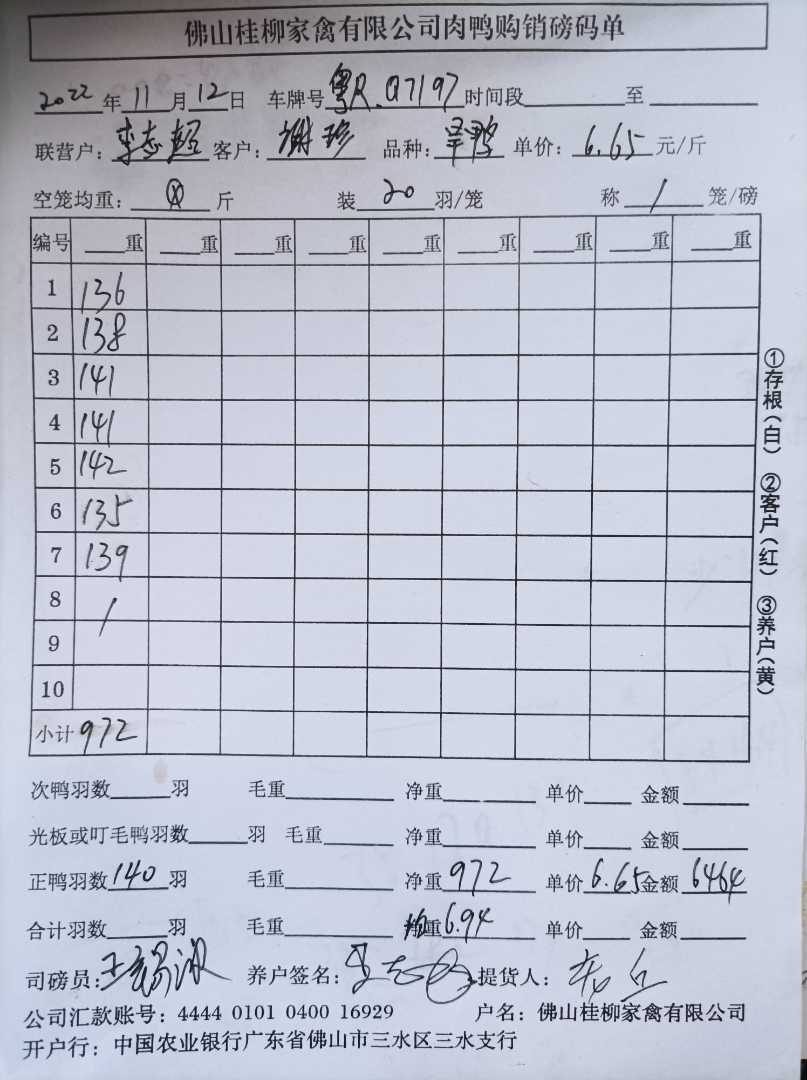 佛山桂柳家禽有限公司肉鸭购销磅码单
2022年11月12日 车牌号粤R.Q7197时间段 至
联营户: 李志超 客户: 谢珍 品种: 旱鸭 单价: 6.65元/斤
空笼均重: 斤 装20羽/笼 称 1 笼/磅
编号 重 重 重 重 重 重 重 重 重
1 136
2 138
3 141
4 141
5 142
6 135
7 139
8 /
9
10
小计 972
次鸭羽数 羽 毛重 净重 单价 金额
光板或叮毛鸭羽数 羽 毛重 净重 单价 金额
正鸭羽数140羽 毛重 净重972 单价6.65金额6464
合计羽数 羽 毛重 均重6.94 单价 金额
司磅员: 养户签名: 提货人:
公司汇款账号: 4444 0101 0400 16929 户名: 佛山桂柳家禽有限公司
开户行: 中国农业银行广东省佛山市三水区三水支行
①存根(白) ②客户(红) ③养户(黄)